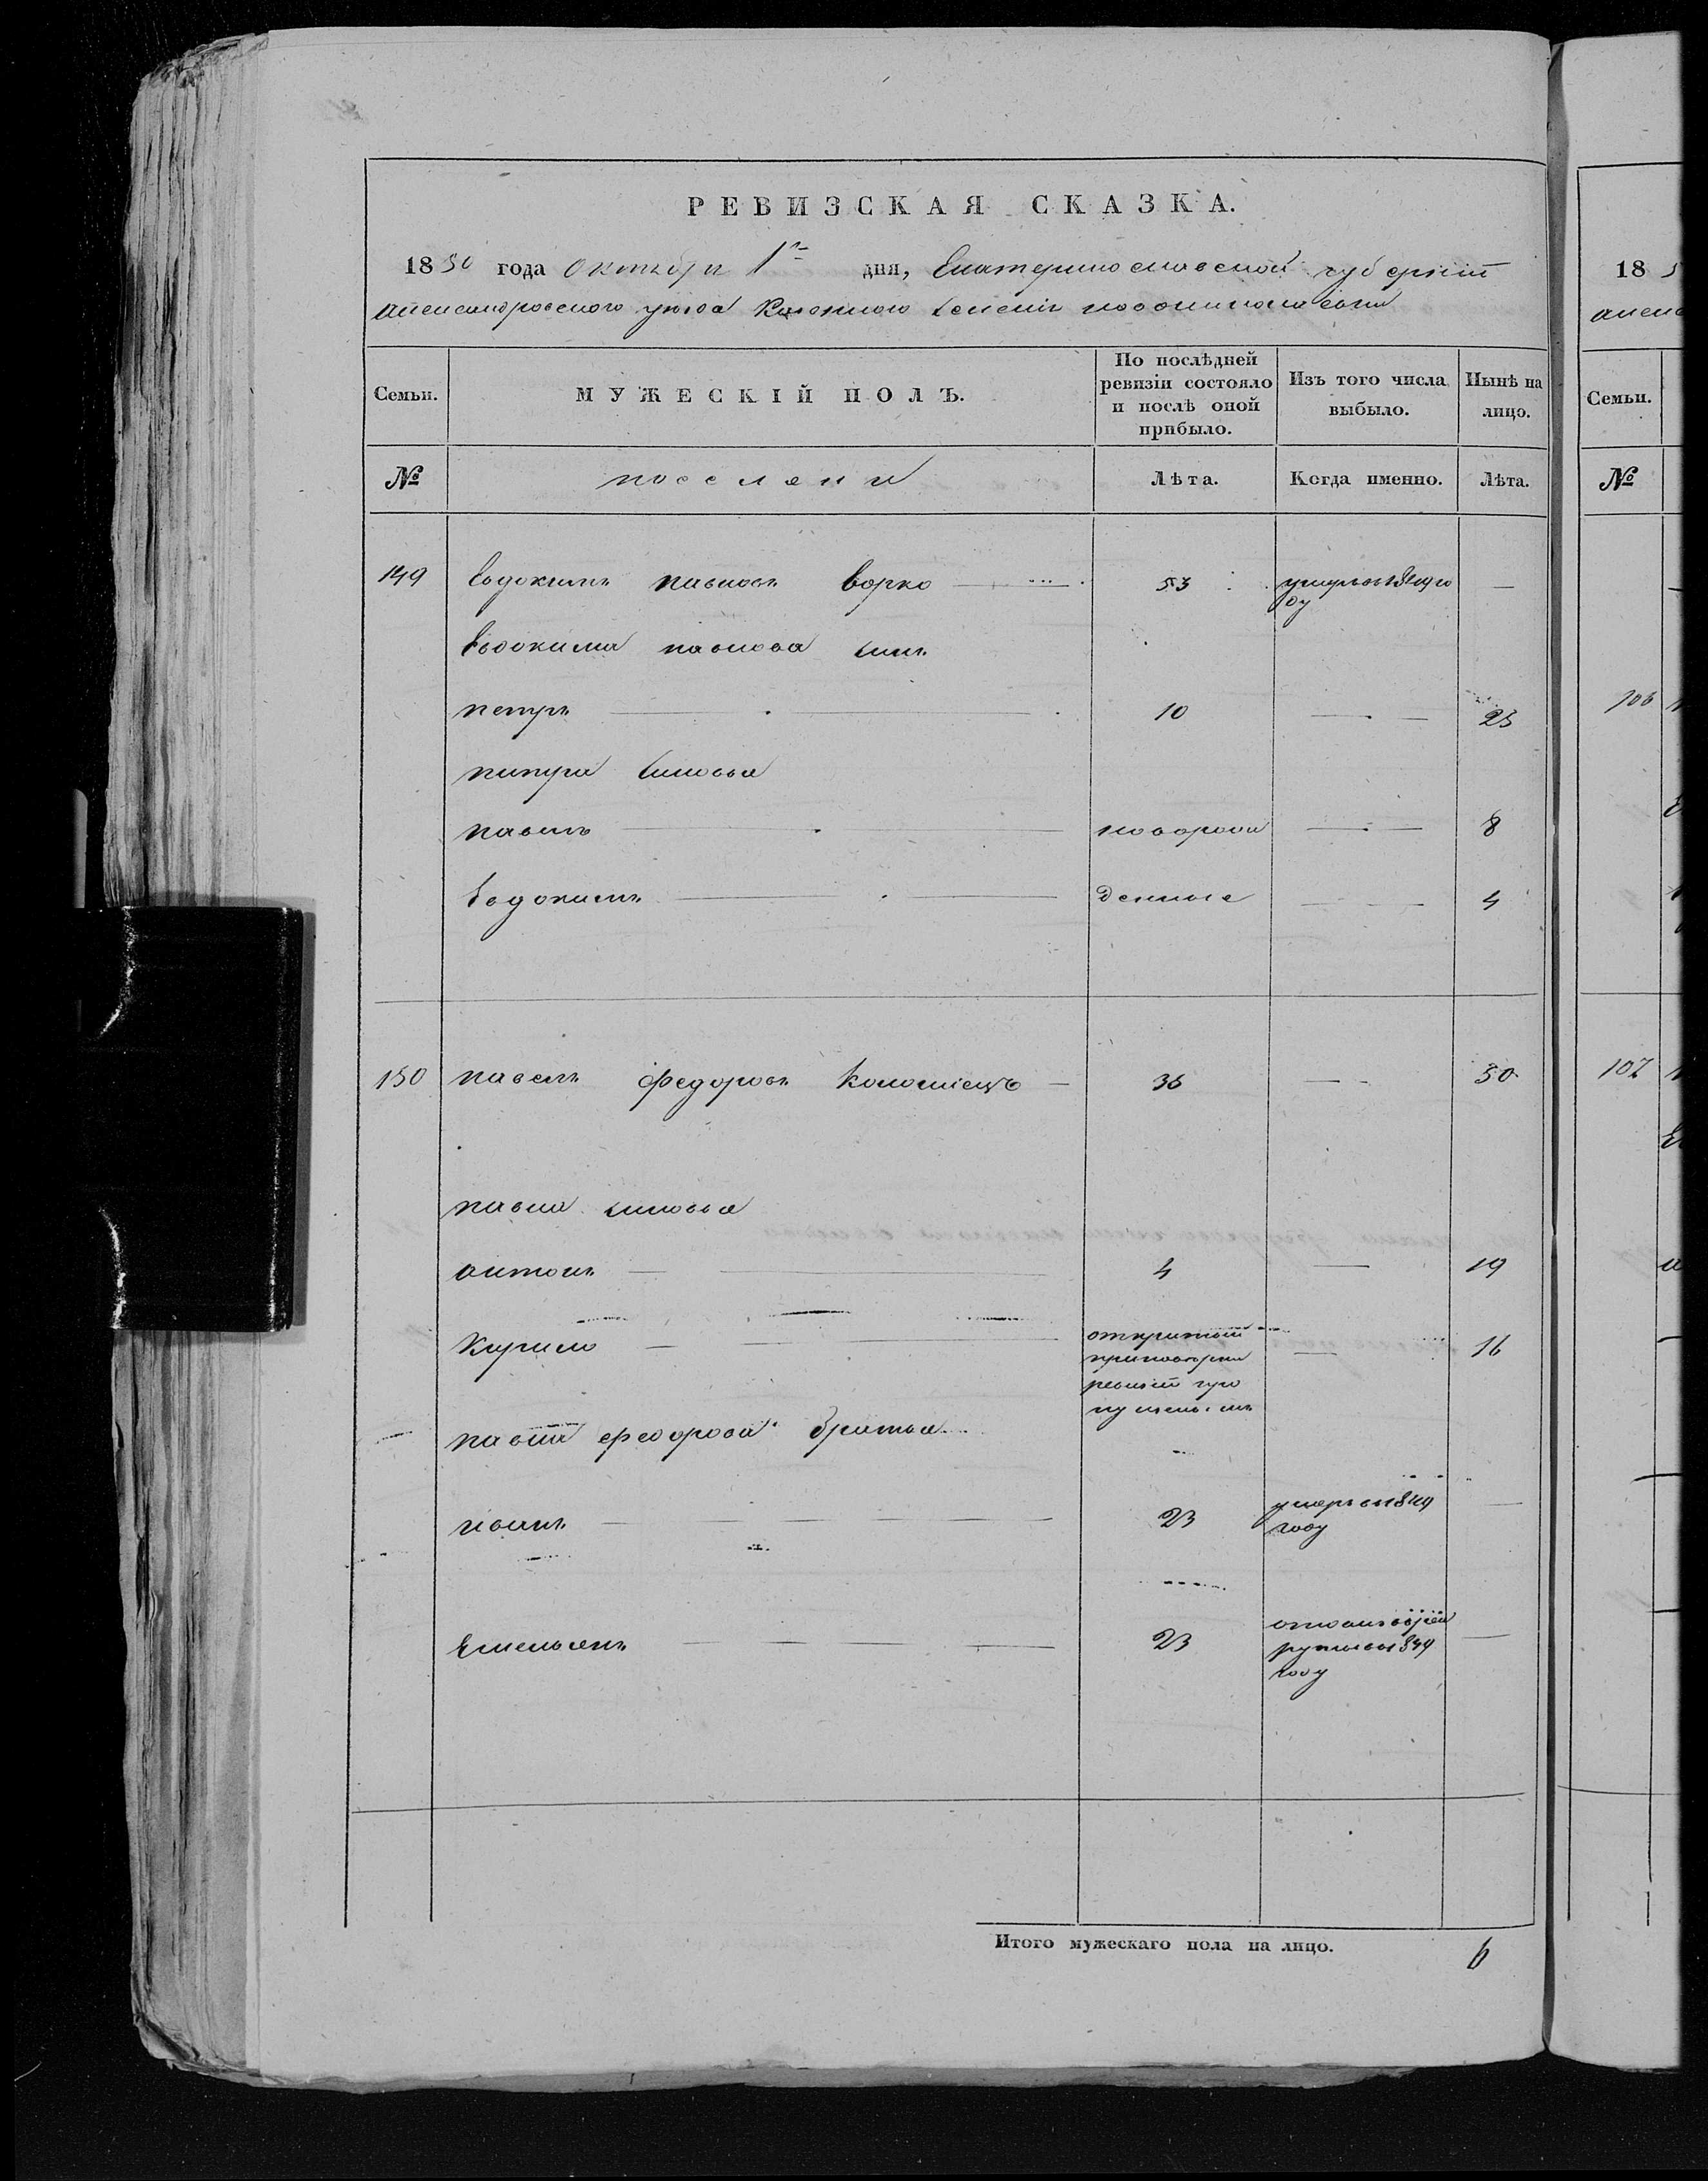 РЕВИЗСКАЯ СКАЗКА.
1850 года Октября 1го дня, Екатеринославской губернии
Александровского уезда Казенного селения
Семьи. МУЖЕСКІЙ ПОЛЪ. По послѣдней ревизіи состояло и послѣ оной прибыло. Изъ того числа выбыло. Нынѣ на лицо.
№ поселяни Лѣта. Когда именно. Лѣта.
149 Евдокимъ павловъ ворко 53 умеръ
ду
Евдокима павлова сынъ
петръ 10 23
питра синовья
павелъ новорож 8
Евдокимъ денные 4
150 павелъ федоровъ Коломіецъ 36 50
павла синовья
антонъ 4 19
Кирило 16
ревизіи про
пущеннымъ
павла федорова братья
иванъ 23 умеръ въ 1849
году
Емельянъ 23 отданъ въ рек
руты въ 1849
году
Итого мужескаго пола на лицо. 6
18 5
алекс
Семьи.
№
106
107